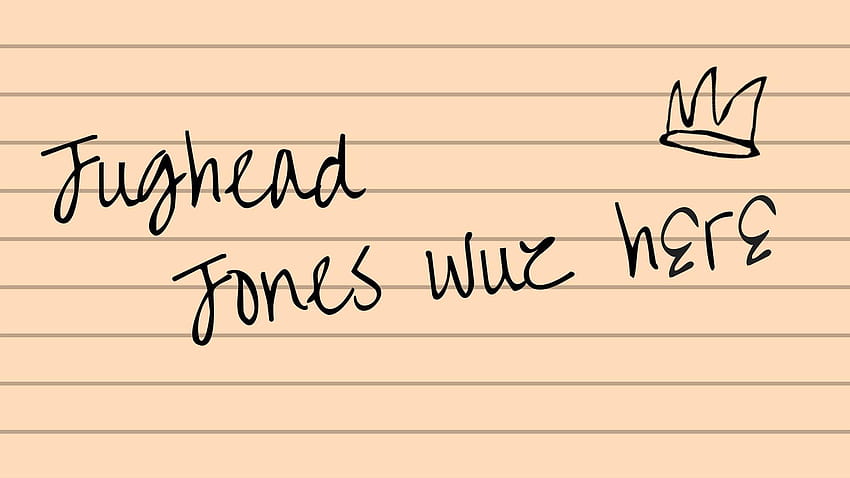 Jughead
Jones wuz here